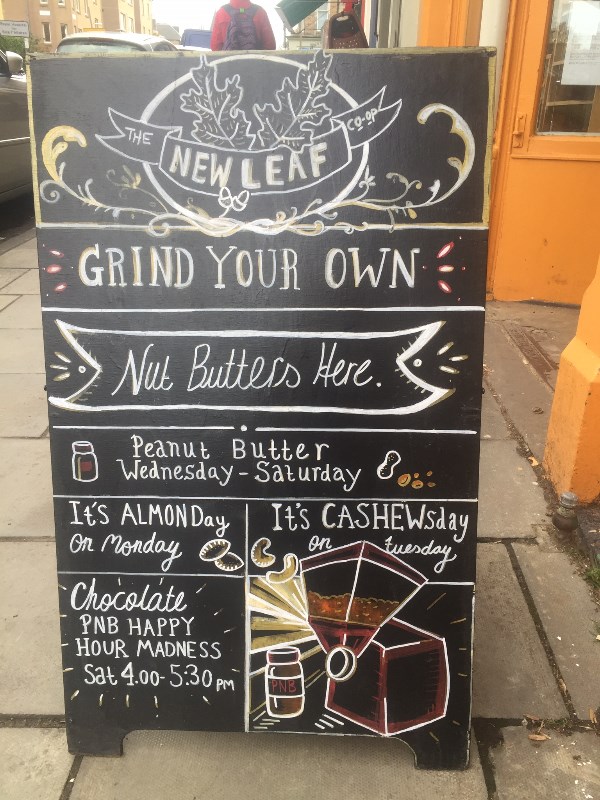 THE NEW LEAF CO-OP
GRIND YOUR OWN
Nut Butters Here.
Peanut Butter
Wednesday - Saturday
It's ALMONDay
on Monday
It's CASHEWsday
on tuesday
Chocolate
PNB HAPPY
HOUR MADNESS
Sat 4.00-5:30 pm
PNB